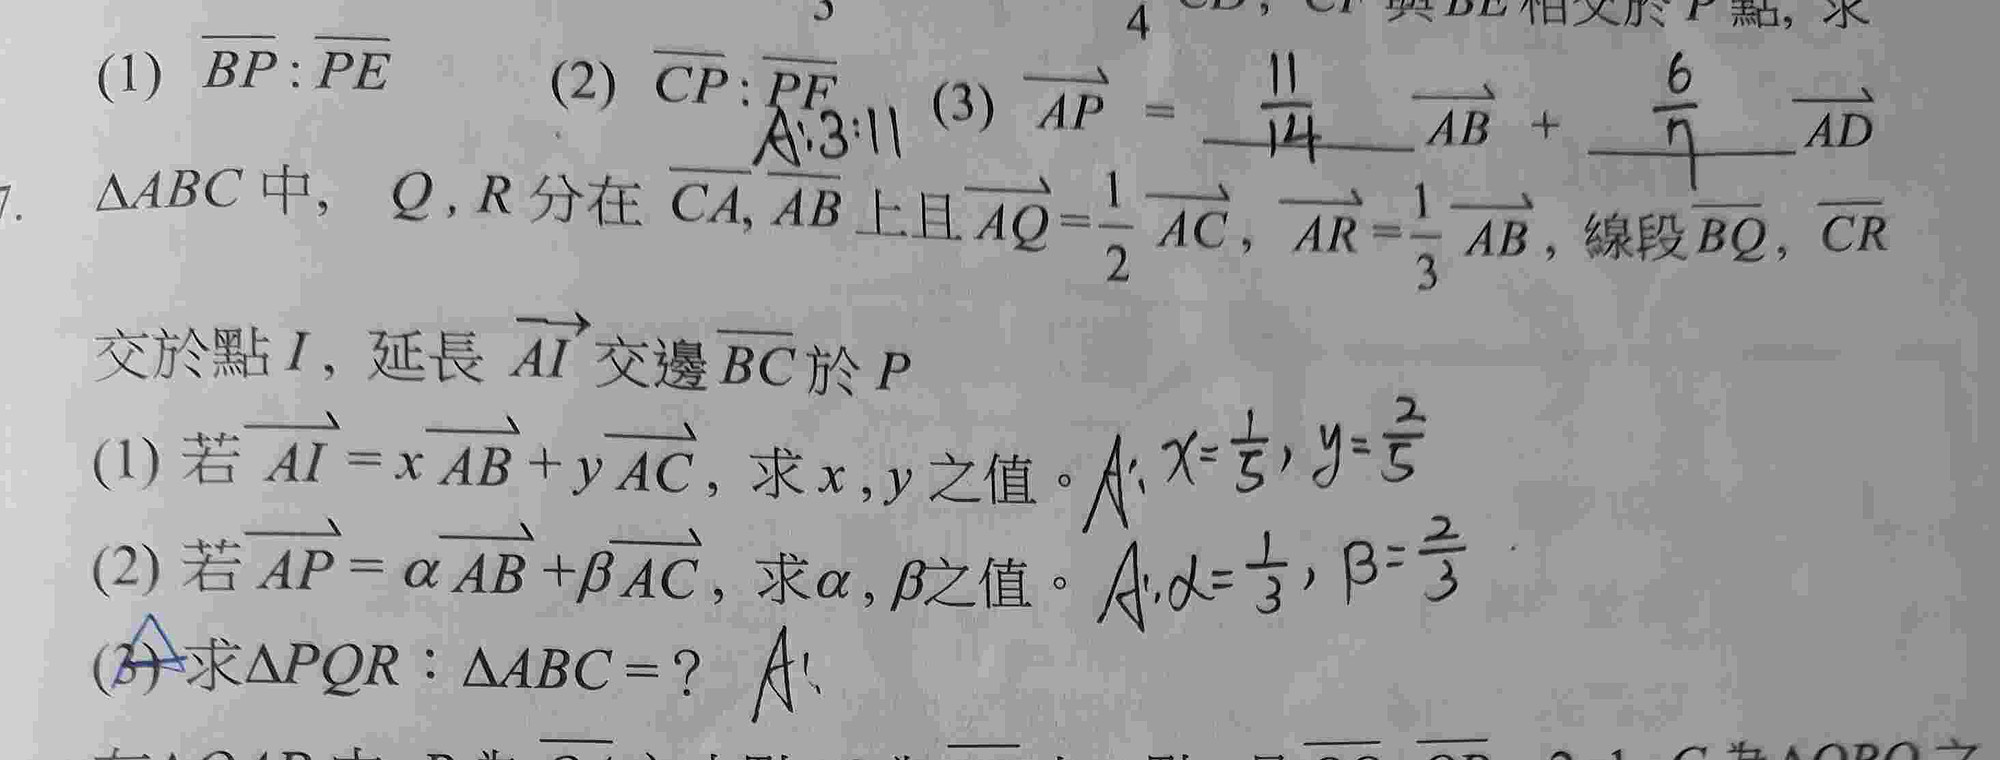 4 CD, CF 與 BE 相交於 P 點, 求
(1) BP : PE (2) CP : PF A:3:11 (3) AP = 11/14 AB + 6/7 AD
7. ΔABC 中, Q , R 分在 CA, AB 上且 AQ = 1/2 AC, AR = 1/3 AB, 線段 BQ, CR
交於點 I, 延長 AI 交邊 BC 於 P
(1) 若 AI = x AB + y AC, 求 x , y 之值。A: x = 1/5, y = 2/5
(2) 若 AP = α AB + β AC, 求 α , β 之值。A: α = 1/3, β = 2/3
(3) 求 ΔPQR : ΔABC = ? A: